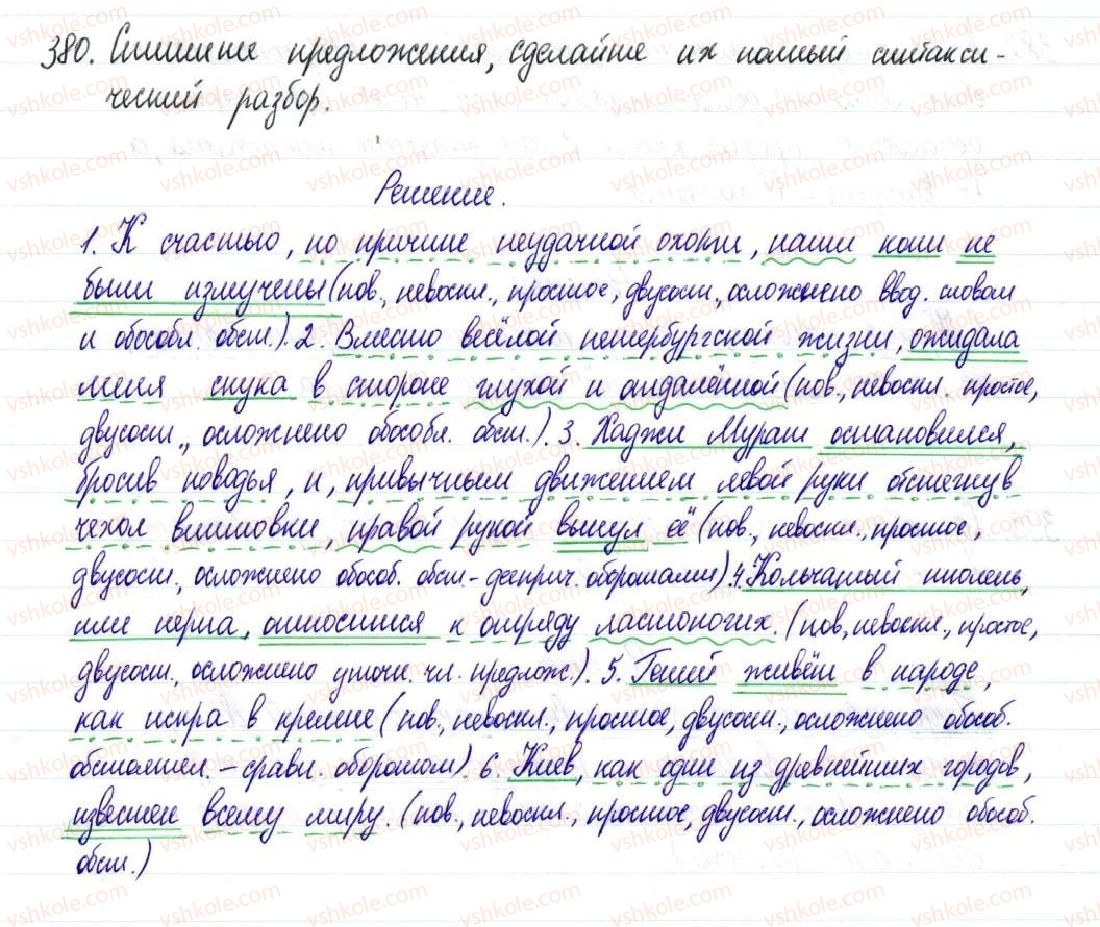 380. Спишите предложения, сделайте их полный синтакси-
ческий разбор.
Решение.
1. К счастью, по причине неудачной охоты, наши кони не
были измучены (пов., невоскл., простое, двусост., осложнено ввод. словом
и обособл. обст.). 2. Вместо весёлой петербургской жизни, ожидала
меня скука в стороне глухой и отдалённой (пов., невоскл. простое,
двусост., осложнено обособл. обст.). 3. Хаджи Мурат остановился,
бросив поводья, и, привычным движением левой руки отстегнув
чехол винтовки, правой рукой вынул её (пов., невоскл., простое,
двусост., осложнено обособ. обст. - дееприч. оборотами). 4. Кольчатый тюлень,
или нерпа, относится к отряду ластоногих. (пов., невоскл., простое,
двусост., осложнено уточн. чл. предлож.). 5. Гений живёт в народе,
как искра в кремене (пов., невоскл., простое, двусост., осложнено обособ.
обстоятел. - сравн. оборотом). 6. Киев, как один из древнейших городов,
известен всему миру. (пов., невоскл., простое, двусост., осложнено обособ.
обст.)